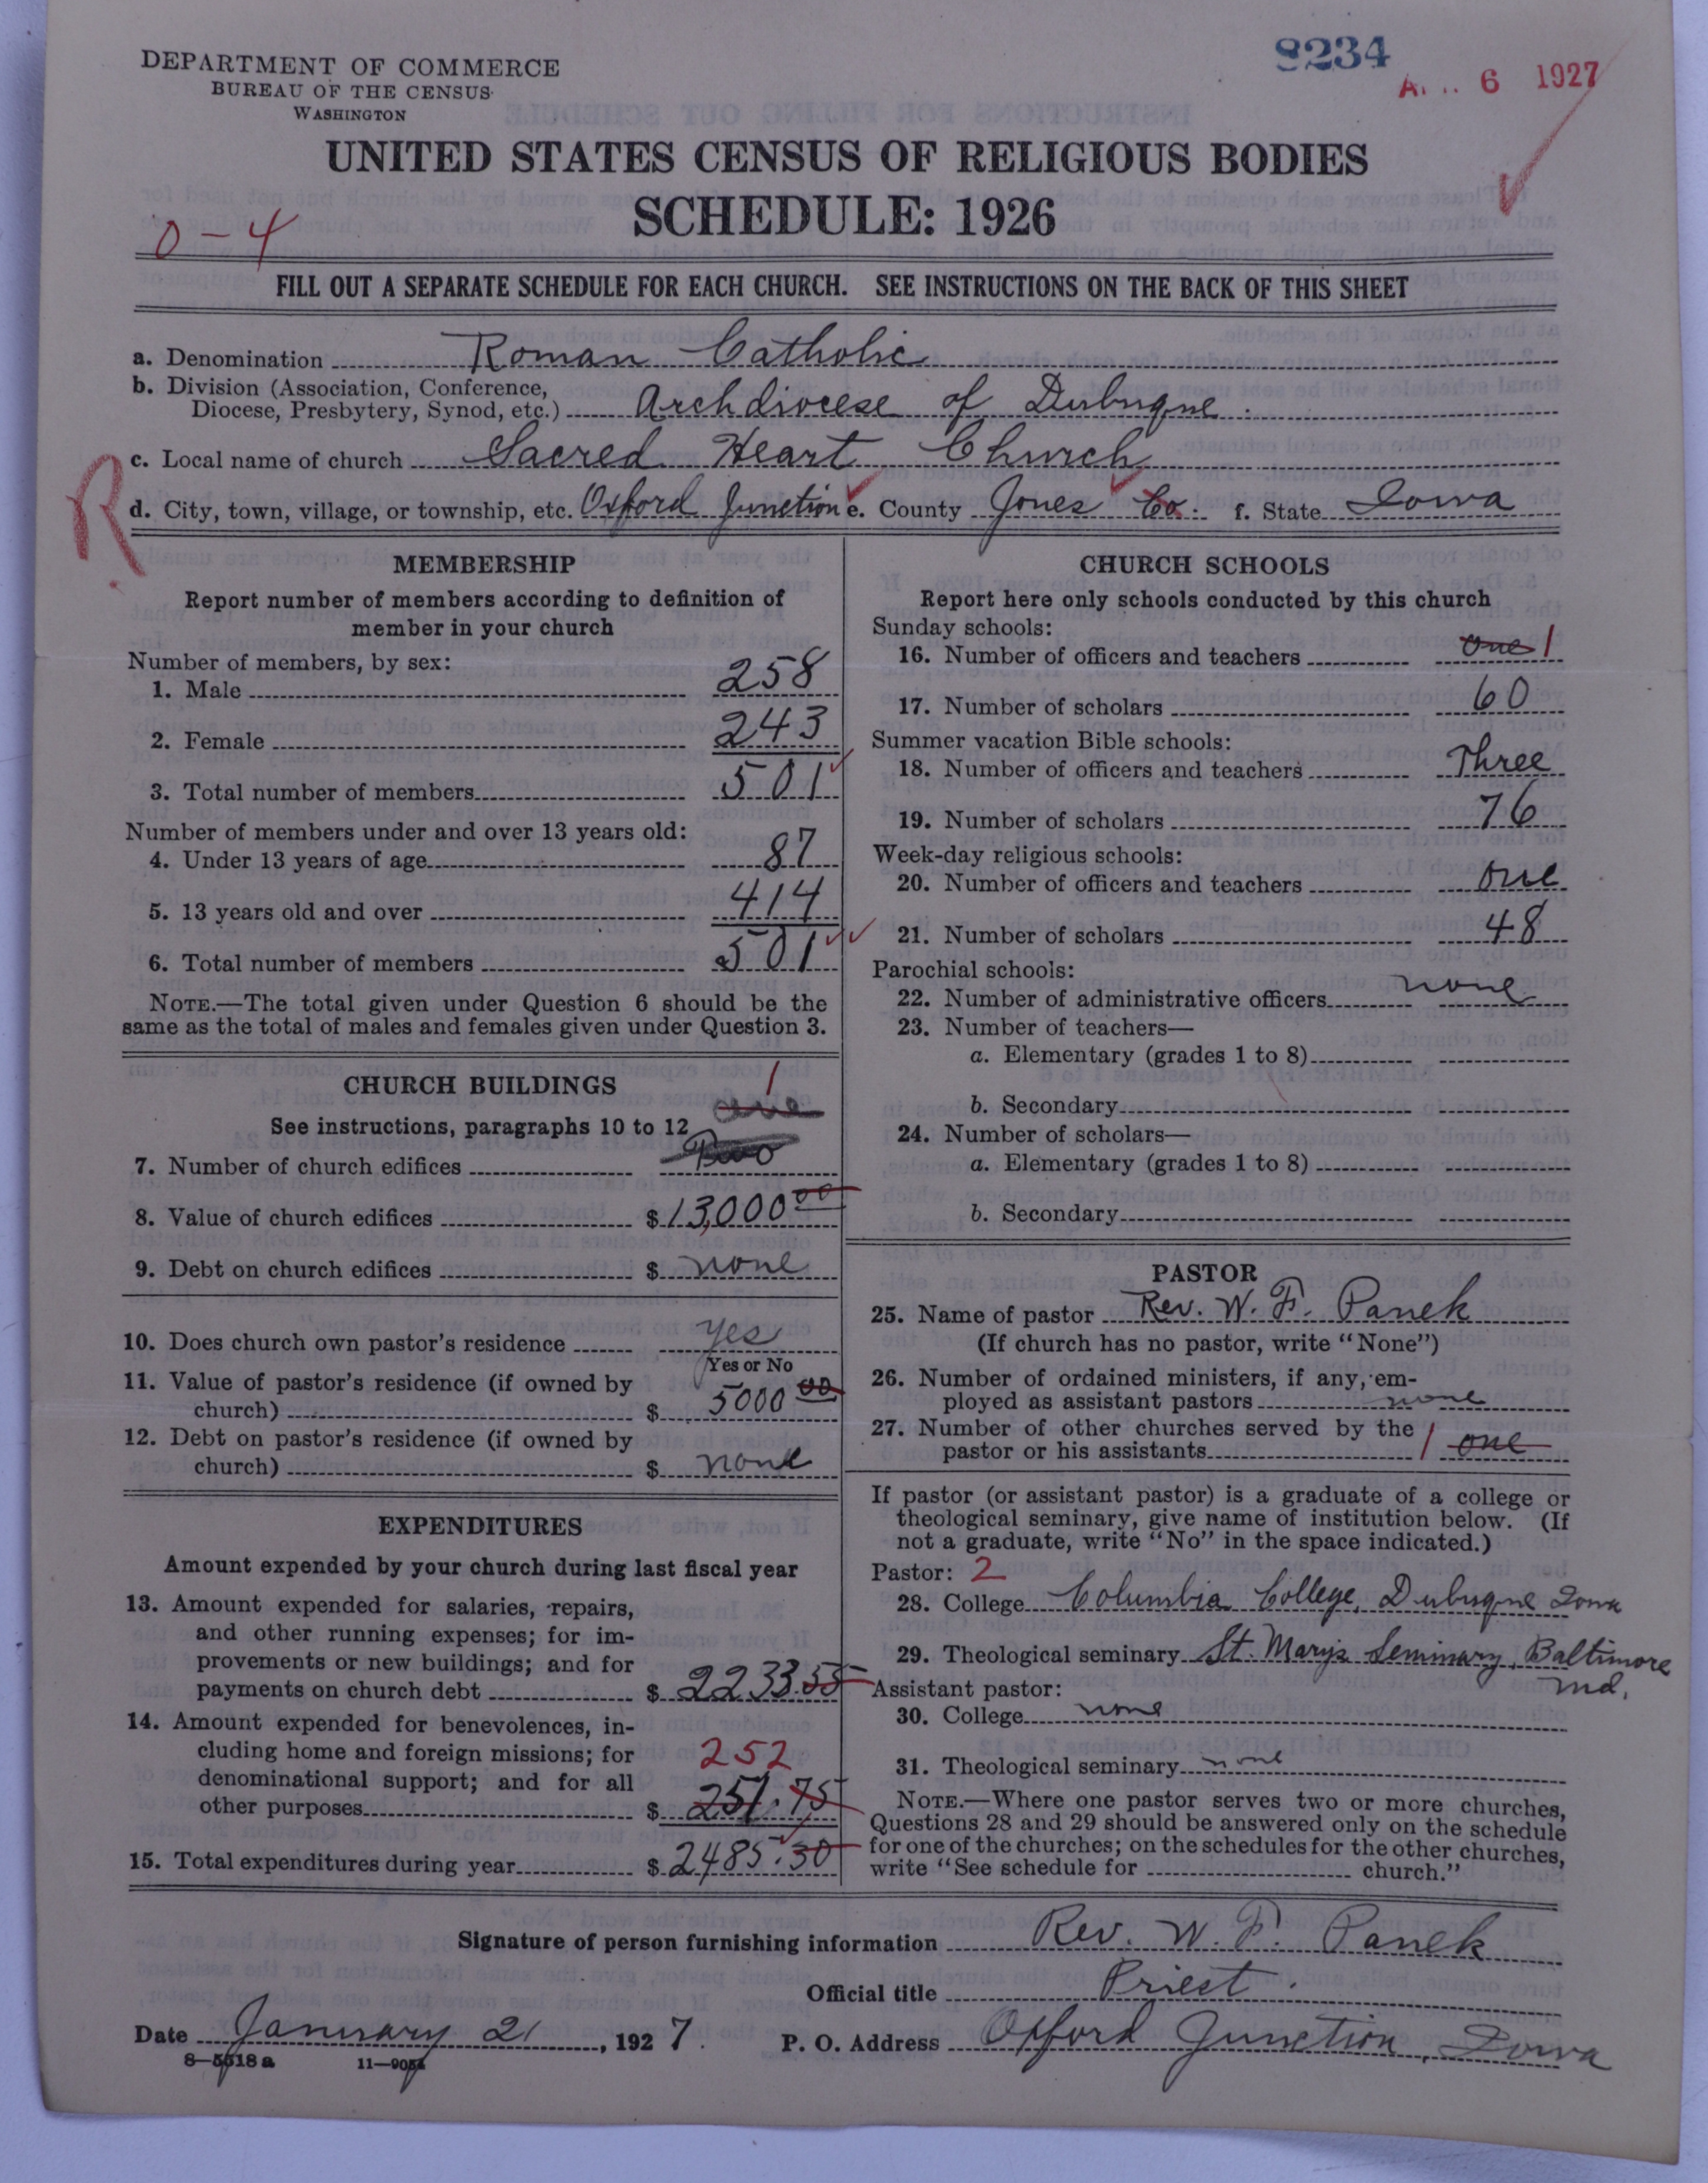 DEPARTMENT OF COMMERCE
BUREAU OF THE CENSUS
WASHINGTON
8234
6 1927
UNITED STATES CENSUS OF RELIGIOUS BODIES
SCHEDULE: 1926
0-4
FILL OUT A SEPARATE SCHEDULE FOR EACH CHURCH. SEE INSTRUCTIONS ON THE BACK OF THIS SHEET
a. Denomination Roman Catholic
b. Division (Association, Conference,
Diocese, Presbytery, Synod, etc.) Archdiocese of Dubuque.
c. Local name of church Sacred Heart Church
R
d. City, town, village, or township, etc. Oxford Junction e. County Jones Co. f. State Iowa
MEMBERSHIP
Report number of members according to definition of
member in your church
Number of members, by sex:
1. Male 258
2. Female 243
3. Total number of members 501
Number of members under and over 13 years old:
4. Under 13 years of age 87
5. 13 years old and over 414
6. Total number of members 501
NOTE.—The total given under Question 6 should be the
same as the total of males and females given under Question 3.
CHURCH BUILDINGS
1
See instructions, paragraphs 10 to 12 one
7. Number of church edifices Two
8. Value of church edifices $13,000 00
9. Debt on church edifices $ none
10. Does church own pastor's residence yes
Yes or No
11. Value of pastor's residence (if owned by
church) $ 5000 00
12. Debt on pastor's residence (if owned by
church) $ none
EXPENDITURES
Amount expended by your church during last fiscal year
13. Amount expended for salaries, repairs,
and other running expenses; for im-
provements or new buildings; and for
payments on church debt $ 2233.55
14. Amount expended for benevolences, in-
cluding home and foreign missions; for 252
denominational support; and for all
other purposes $ 251.75
15. Total expenditures during year $ 2485.30
CHURCH SCHOOLS
Report here only schools conducted by this church
Sunday schools:
16. Number of officers and teachers one 1
17. Number of scholars 60
Summer vacation Bible schools:
18. Number of officers and teachers Three
19. Number of scholars 76
Week-day religious schools:
20. Number of officers and teachers one
21. Number of scholars 48
Parochial schools:
22. Number of administrative officers none
23. Number of teachers—
a. Elementary (grades 1 to 8)
b. Secondary
24. Number of scholars—
a. Elementary (grades 1 to 8)
b. Secondary
PASTOR
25. Name of pastor Rev. W. F. Panek
(If church has no pastor, write "None")
26. Number of ordained ministers, if any, em-
ployed as assistant pastors none
27. Number of other churches served by the
pastor or his assistants 1 one
If pastor (or assistant pastor) is a graduate of a college or
theological seminary, give name of institution below. (If
not a graduate, write "No" in the space indicated.)
Pastor: 2
28. College Columbia College, Dubuque Iowa
29. Theological seminary St. Mary's Seminary, Baltimore
Md.
Assistant pastor:
30. College none
31. Theological seminary none
NOTE.—Where one pastor serves two or more churches,
Questions 28 and 29 should be answered only on the schedule
for one of the churches; on the schedules for the other churches,
write "See schedule for church."
Signature of person furnishing information Rev. W. F. Panek
Official title Priest.
Date January 21, 1927. P. O. Address Oxford Junction, Iowa
8—5518a 11—9054